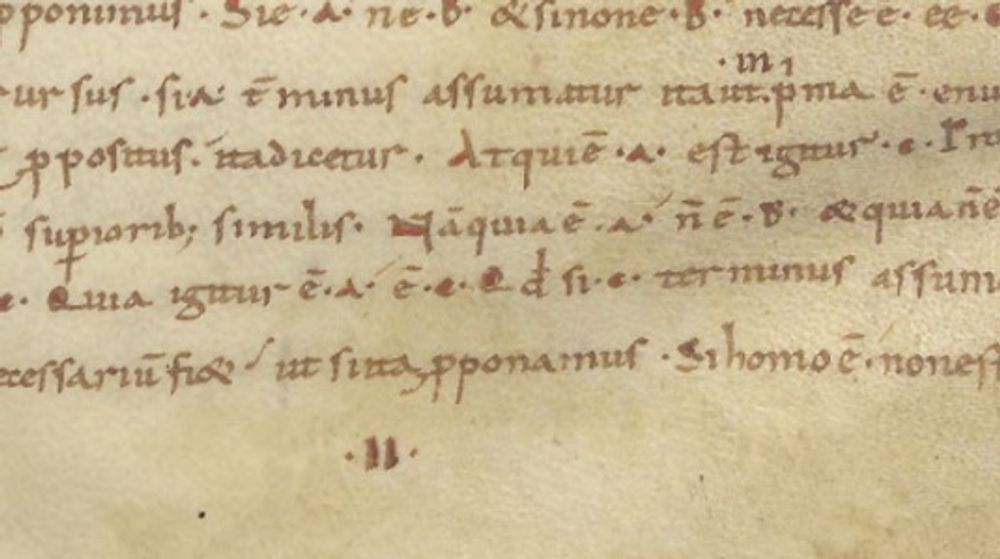 pponimus · Si e · a · ne · b · & sinone · b · necesse e · ee ·
ursus · si a · t̄minus assumatur ita ut p̱ma ē · enu
·m1
ꝓpositus · ita dicetur · Atqui ē · a · est igitur · c ·
sup̱iorib; similis · Nā quia ē · a · n̄ ē · b · & quia n̄ ē
c · Quia igitur ē · a · ē · c · Qd si · c · terminus assum
ecessariū fi& ut si ita ꝓponamus · Si homo ē · non est
· II ·